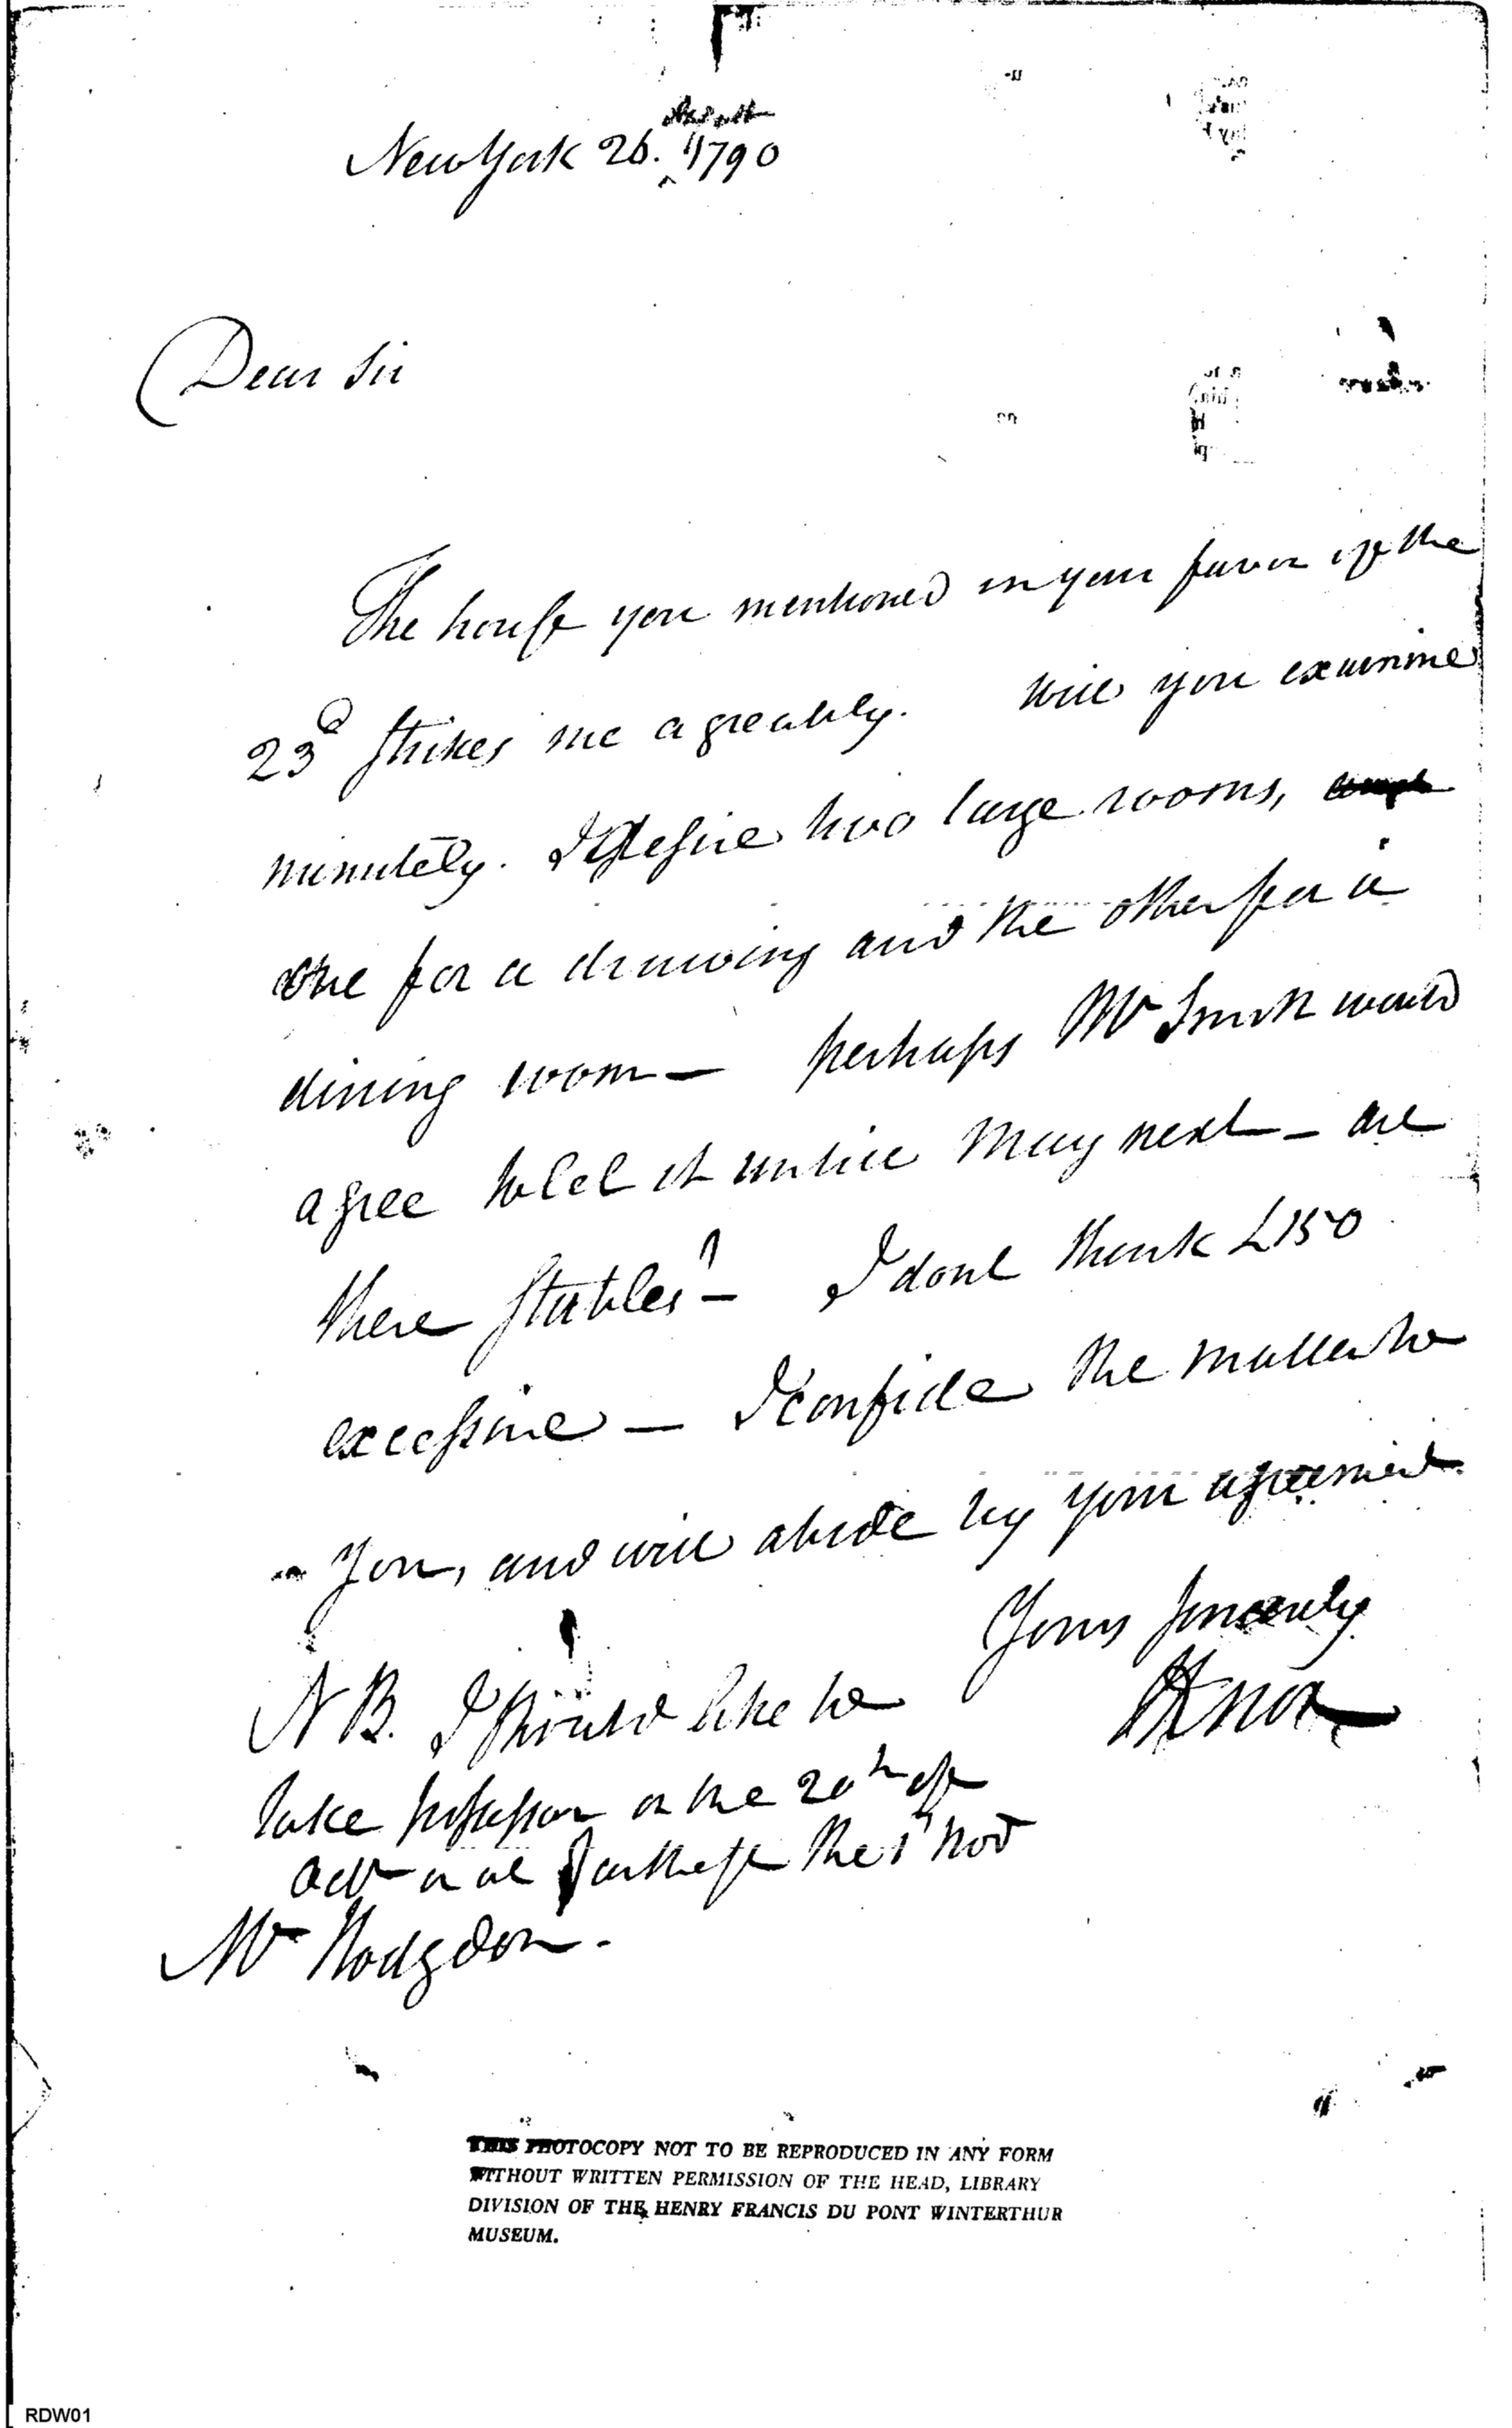 New York 26. August 1790
Dear Sir
The house you mentioned in your favor of the
23d strikes me agreably. Will you examine
minutely. I desire two large rooms,
one for a drawing and the other for a
dining room — perhaps Mr Smith would
agree to let it untill May next — are
there stables? — I dont think £150
excessive — I confide the matter to
you, and will abide by your agreement.
Yours sincerely
HKnox
NB. I should like to
take possession on the 20th of
Octr or at farthest the 1st Nov
Mr Hodgdon.
THIS PHOTOCOPY NOT TO BE REPRODUCED IN ANY FORM
WITHOUT WRITTEN PERMISSION OF THE HEAD, LIBRARY
DIVISION OF THE HENRY FRANCIS DU PONT WINTERTHUR
MUSEUM.
RDW01